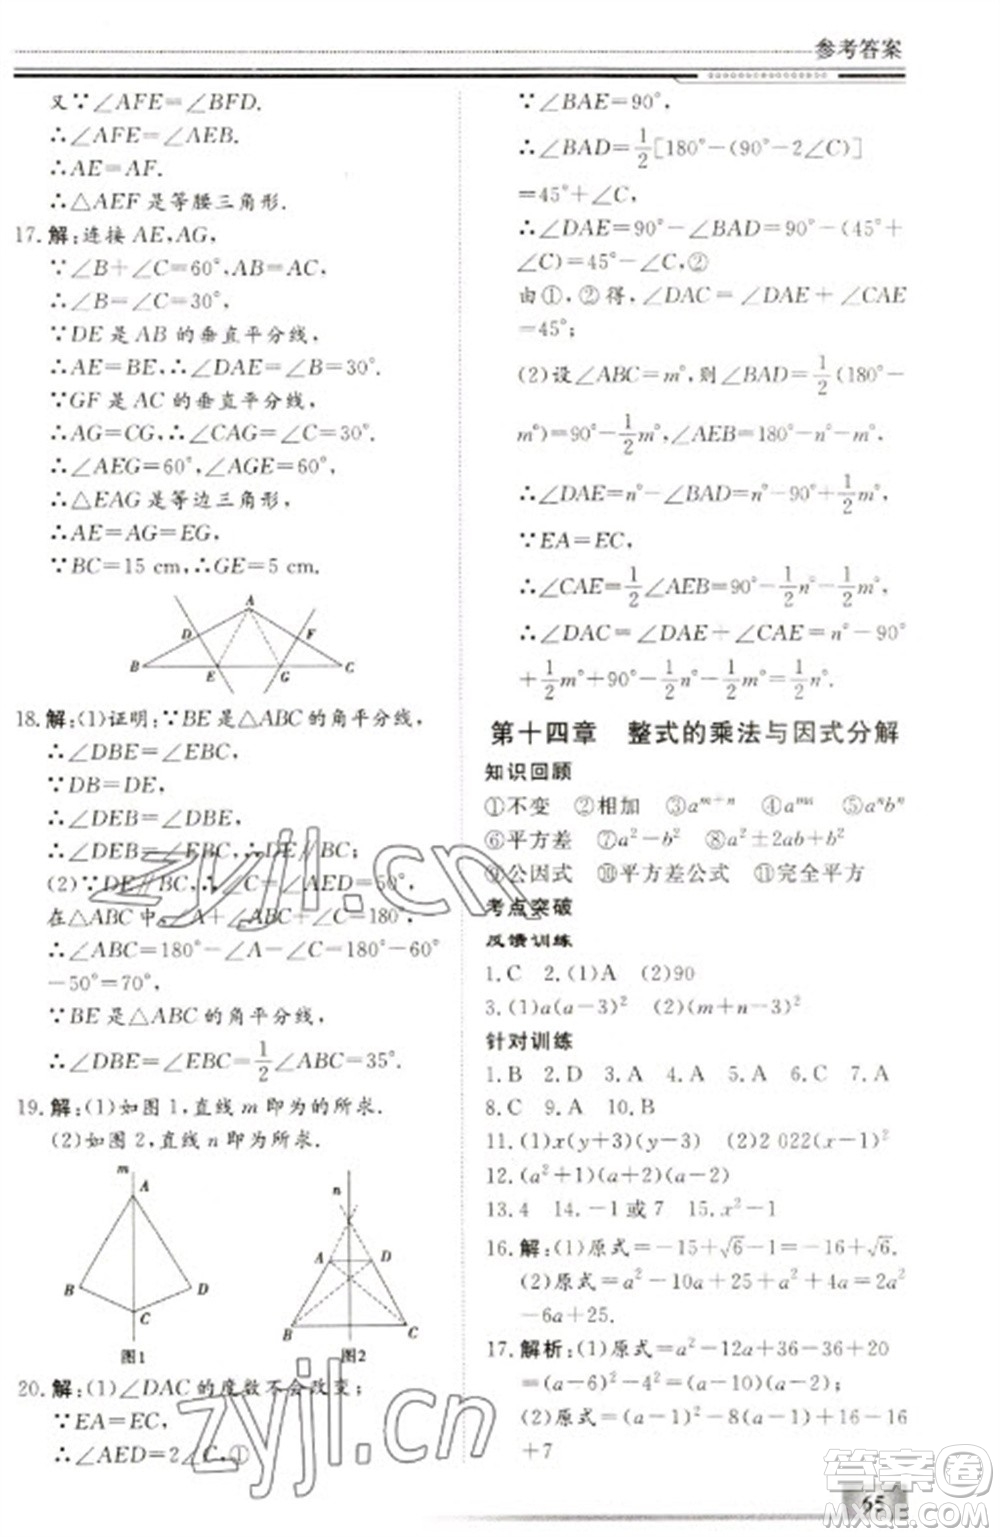 参考答案
又∵∠AFE=∠BFD.
∴∠AFE=∠AEB.
∴AE=AF.
∴△AEF是等腰三角形.
17.解:连接AE,AG,
∵∠B+∠C=60°,AB=AC,
∴∠B=∠C=30°,
∵DE是AB的垂直平分线,
∴AE=BE,∴∠DAE=∠B=30°.
∵GF是AC的垂直平分线,
∴AG=CG,∴∠CAG=∠C=30°.
∴∠AEG=60°,∠AGE=60°.
∴△EAG是等边三角形,
∴AE=AG=EG,
∵BC=15 cm,∴GE=5 cm.
A
D F
B E G C
18.解:(1)证明:∵BE是△ABC的角平分线,
∴∠DBE=∠EBC,
∵DB=DE,
∴∠DEB=∠DBE,
∴∠DEB=∠EBC,
∴DE∥BC;
(2)∵DE∥BC,∴∠C=∠AED=50°.
在△ABC中,∠A+∠ABC+∠C=180°,
∴∠ABC=180°-∠A-∠C=180°-60°
-50°=70°,
∵BE是△ABC的角平分线,
∴∠DBE=∠EBC=1/2∠ABC=35°.
19.解:(1)如图1,直线m即为的所求.
(2)如图2,直线n即为所求.
m
A
B D
C
图1
n
A D
B C
图2
20.解:(1)∠DAC的度数不会改变;
∵EA=EC,
∴∠AED=2∠C,①
∵∠BAE=90°,
∴∠BAD=1/2[180°-(90°-2∠C)]
=45°+∠C,
∴∠DAE=90°-∠BAD=90°-(45°+
∠C)=45°-∠C,②
由①,②得,∠DAC=∠DAE+∠CAE
=45°;
(2)设∠ABC=m°,则∠BAD=1/2(180°-
m°)=90°-1/2m°,∠AEB=180°-n°-m°.
∴∠DAE=n°-∠BAD=n°-90°+1/2m°,
∵EA=EC,
∴∠CAE=1/2∠AEB=90°-1/2n°-1/2m°,
∴∠DAC=∠DAE+∠CAE=n°-90°
+1/2m°+90°-1/2n°-1/2m°=1/2n°.
第十四章 整式的乘法与因式分解
知识回顾
①不变 ②相加 ③a^(m+n) ④a^(mn) ⑤a^n b^n
⑥平方差 ⑦a²-b² ⑧a²±2ab+b²
⑨公因式 ⑩平方差公式 ⑪完全平方
考点突破
反馈训练
1.C 2.(1)A (2)90
3.(1)a(a-3)² (2)(m+n-3)²
针对训练
1.B 2.D 3.A 4.A 5.C 6.C 7.A
8.C 9.A 10.B
11.(1)x(y+3)(y-3) (2)2 022(x-1)²
12.(a²+1)(a+2)(a-2)
13.4 14.-1或7 15.x²-1
16.解:(1)原式=-15+√6-1=-16+√6.
(2)原式=a²-10a+25+a²+4a=2a²
-6a+25.
17.解析:(1)原式=a²-12a+36-36+32
=(a-6)²-4=(a-4)(a-8)
(2)原式=(a-1)²-8(a-1)+16-16
+7
65
zyjl.cn
zyjl.cn
答案圈
MXQE.COM